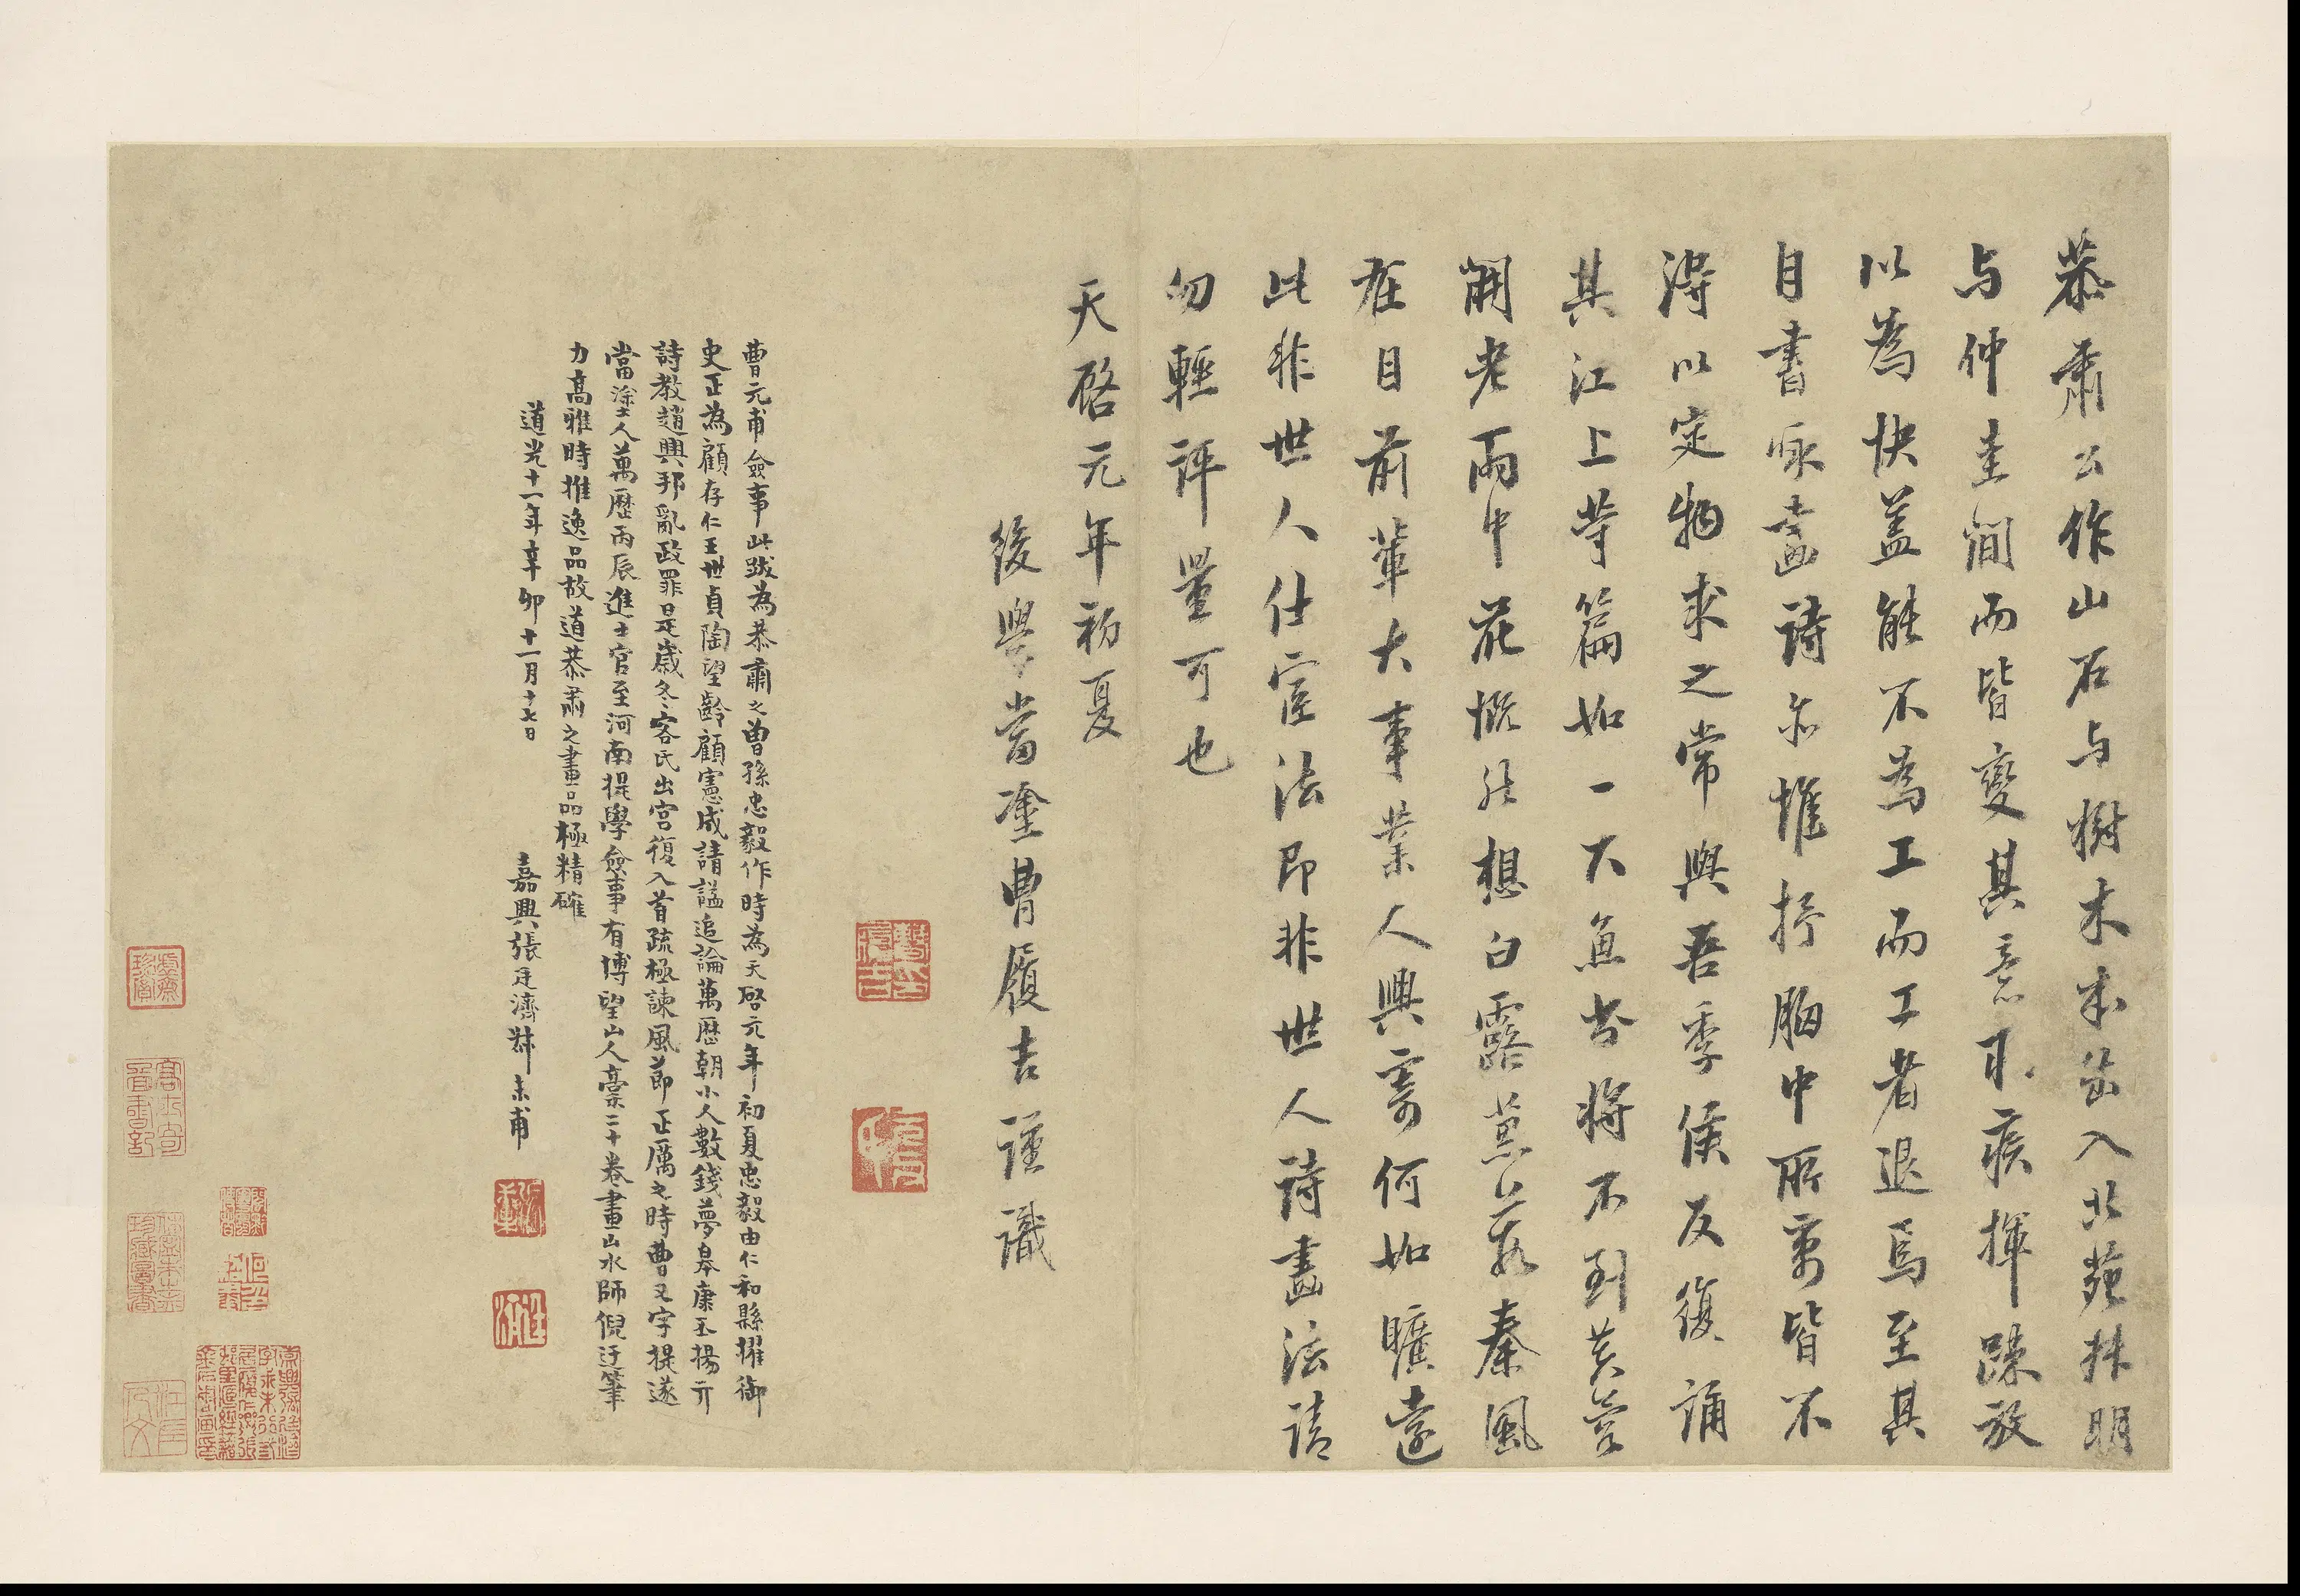 恭肅公作山石与樹木本出入北苑林明
与仲圭間而皆變其意耳疾揮疎放
以為快蓋能不為工而工者退焉至其
自書詠畫詩亦惟抒胸中所寄皆不
得以定物求之常與吾季侯反復誦
其江上等篇如一大魚皆將不到黃管
開老雨中花慨然想白露蒹葭秦風
在目前輩大事業人興寄何如曠遠
此非世人仕宦法即非世人詩畫法請
勿輕評量可也
天啓元年初夏
後學當塗曹履吉謹識
曹元甫僉事此跋為恭肅之曾孫忠毅作時為天啓元年初夏忠毅由仁和縣擢御
史正為顧存仁王世貞陶望齡顧憲成請謚追論萬歷朝小人數錢夢皋康丕揚亓
詩教趙興邦亂政罪是歲冬客氏出宮復入首疏極諫風節正厲之時曹又字提遂
當塗人萬歷丙辰進士官至河南提學僉事有博望山人稾二十卷畫山水師倪迂筆
力高雅時推逸品故道恭肅之畫品極精確
道光十一年辛卯十一月十七日
嘉興張廷濟叔未甫